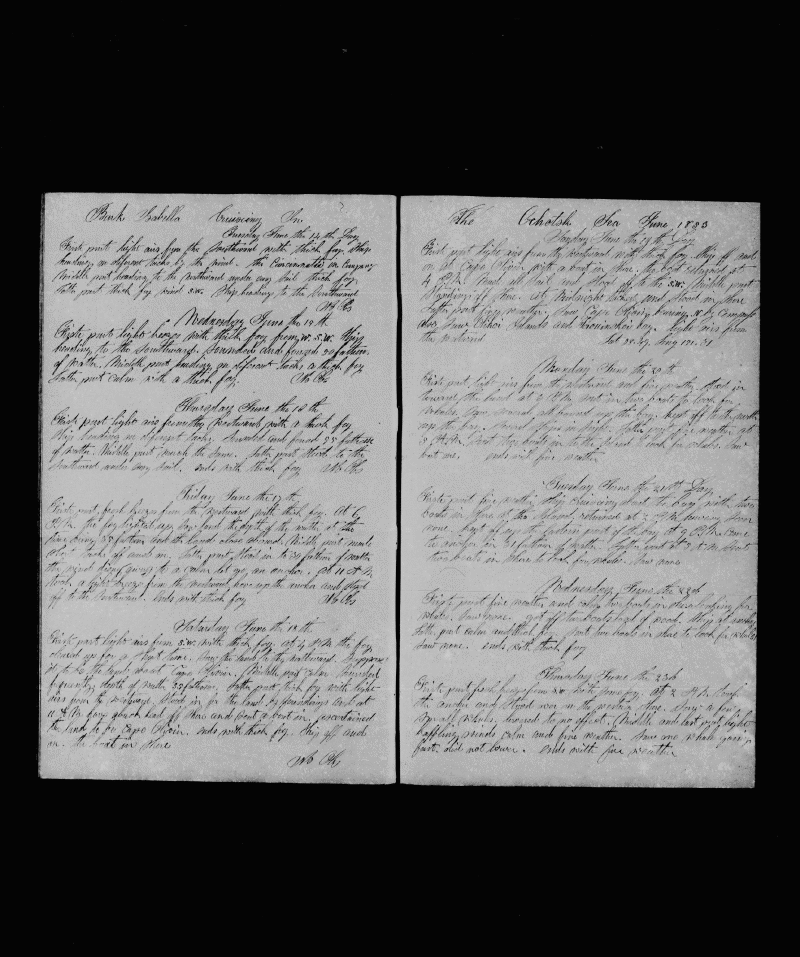 Bark Isabella Cruising In
Tuesday June the 14th Day
First part light airs from the Southward with thick fog. Ship
heading on different tacks by the wind. the Cincinnatti in Company
Middle part heading to the Westward under easy sail thick fog
Latter part thick fog wind S.W. Ship heading to the Southward
Wednesday June the 15th
First part light breeze with thick fog from W.S.W. Ship
heading to the Southward. Sounded and found 30 fathoms
of water. Middle part heading on different tacks thick fog
Latter part calm with a thick fog.
Thursday June the 16th
First part light airs from the Westward with a thick fog
Ship heading on different tacks. Sounded and found 25 fathoms
of water. Middle part much the same. Latter part stood to the
Southward under easy sail. ends with thick fog
Friday June the 17th
First part fresh breeze from the Westward with thick fog. At 6
P.M. the fog lighted up saw land the depth of the water at the
time being 25 fathoms and the land close aboard. Middle part made
short tacks off and on. Latter part stood in to 20 fathoms of water
the wind dying away to a calm let go an anchor. At 11 A.M.
took a light breeze from the westward hove up the anchor and stood
off to the Northward. Ends with thick fog
Saturday June the 18th
First part light airs from S.W. with thick fog. at 4 P.M. the fog
cleared up for a short time. Saw the land to the westward. Supposed
it to be the land about Cape Olivin. Middle part calm Sounded
frequently depth of water 33 fathoms. Latter part thick fog with light
airs from the Westward. Stood in for the land by soundings until at
11 A.M. fog shook hauled off shore and sent a boat in ascertained
the land to be Cape Olivin. ends with thick fog. Ship off and
on. the boat in shore
The Ochotsk Sea June 1883
Sunday June the 19th Day
First part light airs from the Westward with thick fog. Ship off and
on at Cape Olivin with a boat in shore. the boat returned at
4 P.M. Made all sail and stood off to the S.W. Middle part
standing off shore. At Midnight tacked and stood in shore
Latter part fog weather. Saw Cape Olivin bearing N by Compass
also Saw Other Islands and bay. light airs from
the westward
Monday June the 20th
First part light airs from the westward and fine weather. Stood in
towards the land at 2 P.M. sent in two boats to look for
whales. Saw several all bound up the bay. kept off
up the bay. Several Ships in sight. Latter part fine weather. at
8 A.M. sent two boats in to the island to look for whales. Saw
but one. ends with fine weather
Tuesday June the 21st Day
First part fine weather Ship cruising about the bay with two
boats in shore at the Island. returned at 2 P.M. having seen
none. kept off for the Eastern part of the bay at 9 P.M. came
to anchor in 21 fathoms of water. Latter part at 3 A.M. sent
two boats in shore to look for whales. Saw none
Wednesday June the 22d
First part fine weather and calm two boats in shore looking for
whales. Saw none. got off two boatsload of wood. Ship at anchor
Latter part calm and thick fog. Sent two boats in shore to look for whales
Saw none. ends with thick fog
Thursday June the 23d
First part fresh breeze from SW with some fog. At 2 P.M. took
the anchor and stood over to the western shore. Saw a few
Sperm whales, chased to no effect. Middle and last part light
baffling winds calm and fine weather. Saw one whale going
fast. did not lower. ends with fine weather